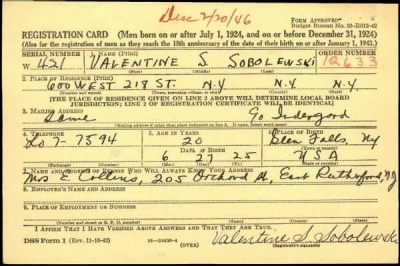 Disc 2/20/46
FORM APPROVED
Budget Bureau No. 33-R012-42
REGISTRATION CARD (Men born on or after July 1, 1924, and on or before December 31, 1924)
(Also for the registration of men as they reach the 18th anniversary of the date of their birth on or after January 1, 1943.)
SERIAL NUMBER 1. NAME (Print) ORDER NUMBER
W 421 VALENTINE S SOBOLEWSKI 12633
(First) (Middle) (Last)
2. PLACE OF RESIDENCE (Print)
600 WEST 218 ST. N.Y. N.Y.
(Number and street) (Town, township, village, or city) (County) (State)
[THE PLACE OF RESIDENCE GIVEN ON LINE 2 ABOVE WILL DETERMINE LOCAL BOARD
JURISDICTION; LINE 2 OF REGISTRATION CERTIFICATE WILL BE IDENTICAL]
3. MAILING ADDRESS
Same
4. TELEPHONE 5. AGE IN YEARS 6. PLACE OF BIRTH
Lo 7-7594 20 Glen Falls, NY
DATE OF BIRTH
6 27 25 USA
(Exchange) (Number) (Mo.) (Day) (Yr.) (State or country)
7. NAME AND ADDRESS OF PERSON WHO WILL ALWAYS KNOW YOUR ADDRESS
Mrs E Collins, 205 Orchard Pl, East Rutherford, NJ
8. EMPLOYER'S NAME AND ADDRESS
9. PLACE OF EMPLOYMENT OR BUSINESS
(Number and street or R. F. D. number) (Town) (County) (State)
I AFFIRM THAT I HAVE VERIFIED ABOVE ANSWERS AND THAT THEY ARE TRUE.
DSS Form 1 (Rev. 11-16-42) (OVER) Valentine S. Sobolewski
(Registrant's signature)